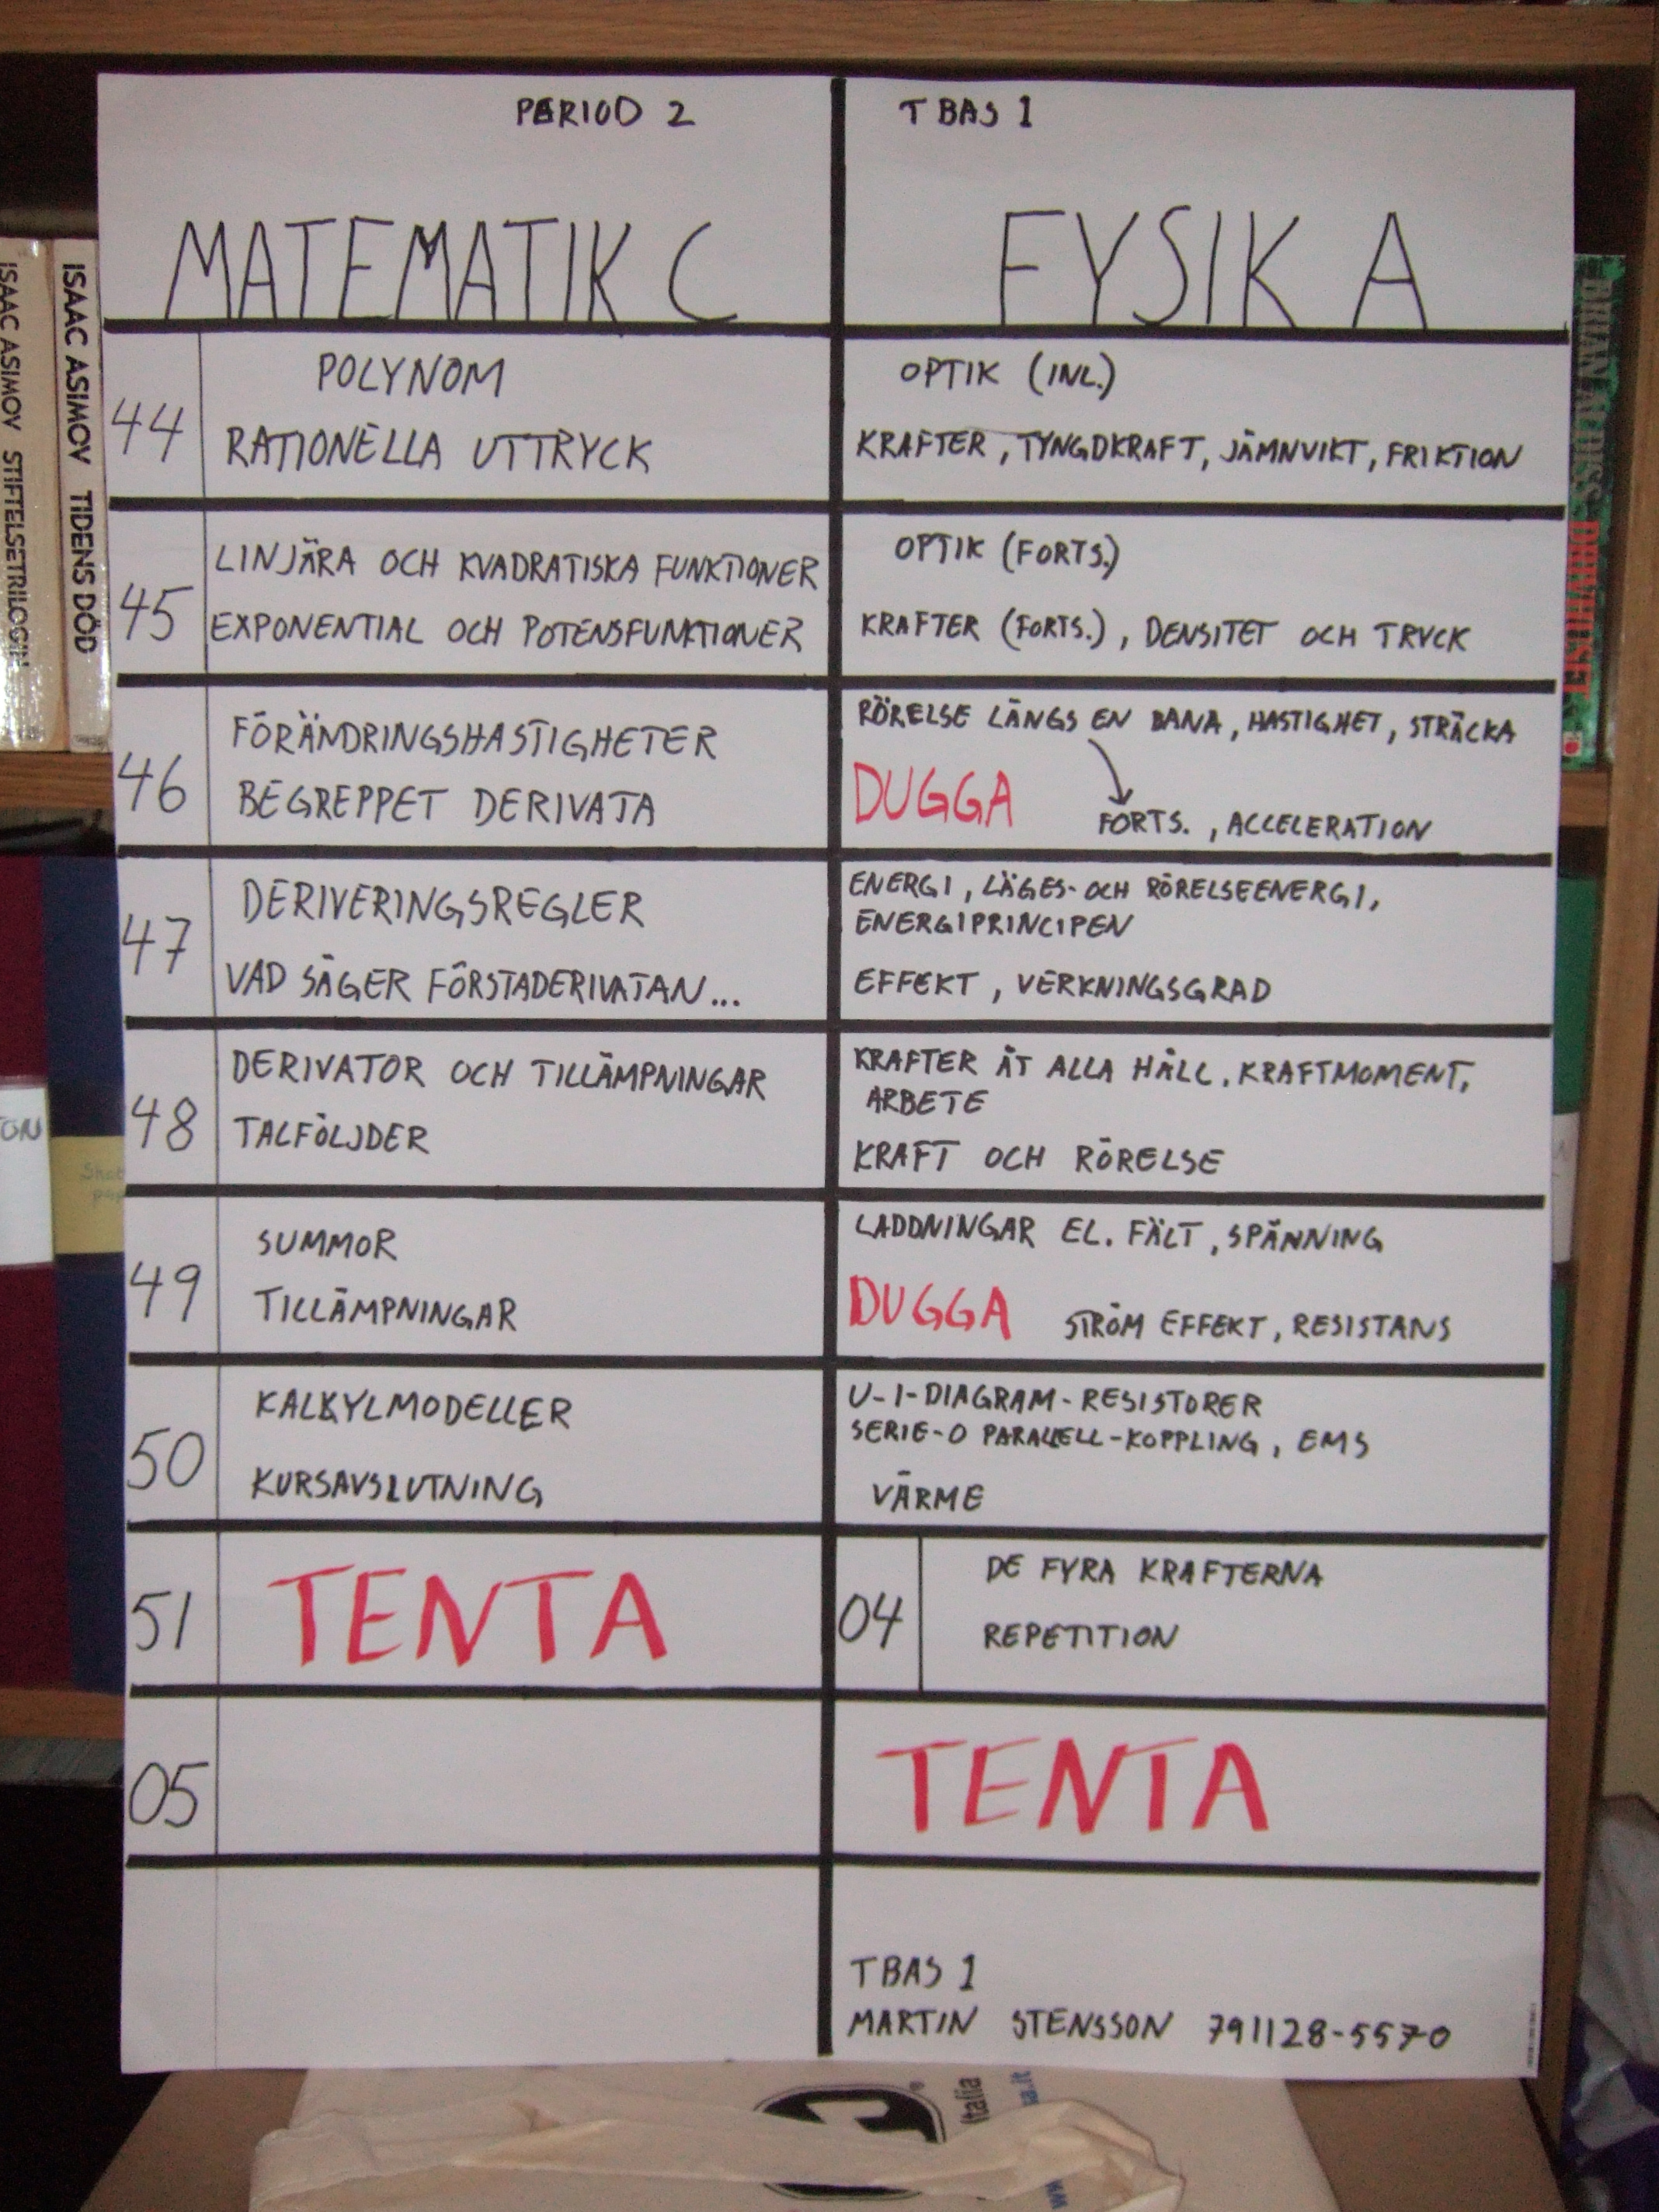 PERIOD 2
T BAS 1
MATEMATIK C
FYSIK A
44
POLYNOM
RATIONELLA UTTRYCK
OPTIK (INL.)
KRAFTER, TYNGDKRAFT, JÄMNVIKT, FRIKTION
45
LINJÄRA OCH KVADRATISKA FUNKTIONER
EXPONENTIAL OCH POTENSFUNKTIONER
OPTIK (FORTS.)
KRAFTER (FORTS.), DENSITET OCH TRYCK
46
FÖRÄNDRINGSHASTIGHETER
BEGREPPET DERIVATA
RÖRELSE LÄNGS EN BANA, HASTIGHET, STRÄCKA
DUGGA FORTS., ACCELERATION
47
DERIVERINGSREGLER
VAD SÄGER FÖRSTADERIVATAN...
ENERGI, LÄGES- OCH RÖRELSEENERGI,
ENERGIPRINCIPEN
EFFEKT, VERKNINGSGRAD
48
DERIVATOR OCH TILLÄMPNINGAR
TALFÖLJDER
KRAFTER ÅT ALLA HÅLL, KRAFTMOMENT,
ARBETE
KRAFT OCH RÖRELSE
49
SUMMOR
TILLÄMPNINGAR
LADDNINGAR EL. FÄLT, SPÄNNING
DUGGA STRÖM EFFEKT, RESISTANS
50
KALKYLMODELLER
KURSAVSLUTNING
U-I-DIAGRAM-RESISTORER
SERIE-O PARALLELL-KOPPLING, EMS
VÄRME
51
TENTA
04
DE FYRA KRAFTERNA
REPETITION
05
TENTA
TBAS 1
MARTIN STENSSON 791128-5570
ISAAC ASIMOV STIFTELSETRILOGIN
ISAAC ASIMOV TIDENS DÖD
BRIAN ALDISS DRIVHUSET
Italia